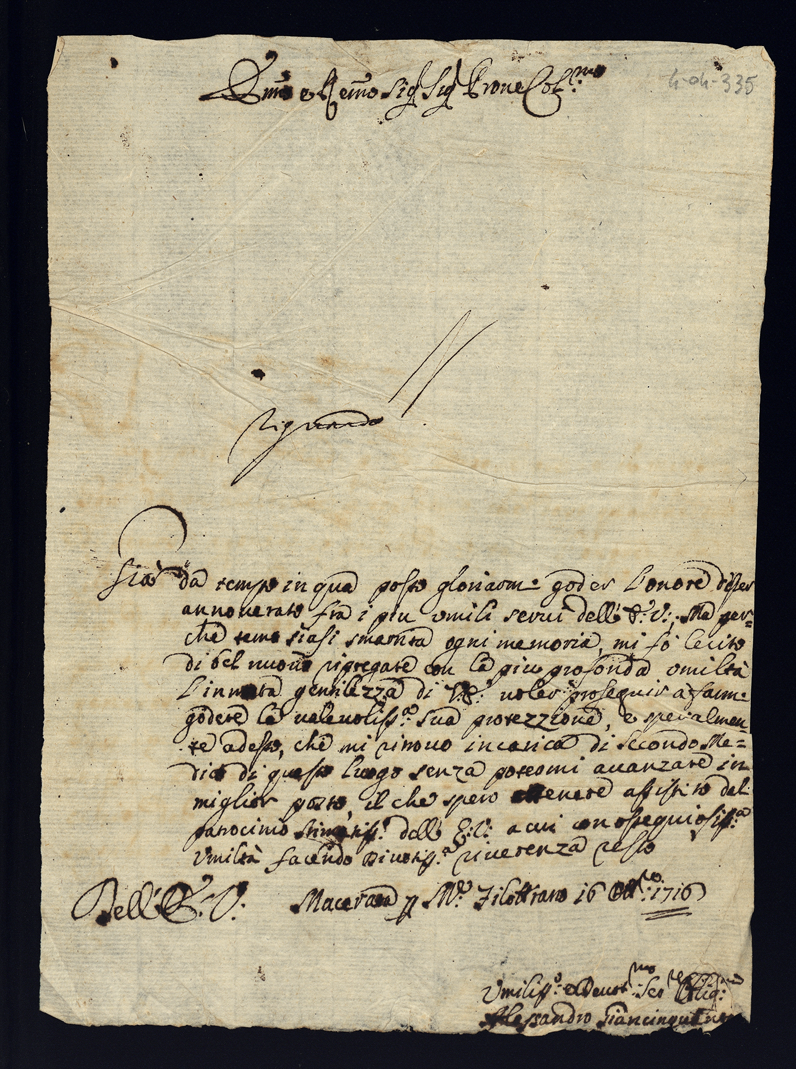 Emo e Remo Sig Sig Prone Col:mo
h-04-335
Rignando
Già da tempo in qua posso gloriarmi goder l'onore d'esser
annoverato frà i più umili servi dell'E: V:, Ma per=
che temo siasi smarrita ogni memoria, mi fò lecito
di bel nuovo ripregare con la più profonda umiltà
l'innata gentilezza di V.E. voler proseguir a farmi
godere la valevoliss:a sua protezzione, e specialmen
te adesso, che mi ritrovo in carica di secondo Me=
dico di questo luogo senza potermi avanzare in
miglior posto il che spero ottenere assistito dal
patrocinio stimatiss:o dell'E:V: a cui con ossequiosiss:a
Umiltà facendo Divotiss:a riverenza resto
Dell'E: V: Macerata p M:e Filottrano 16 Ott:re 1716
Umiliss:o e Devot:mo Ser:re Oblig:mo
Alessandro